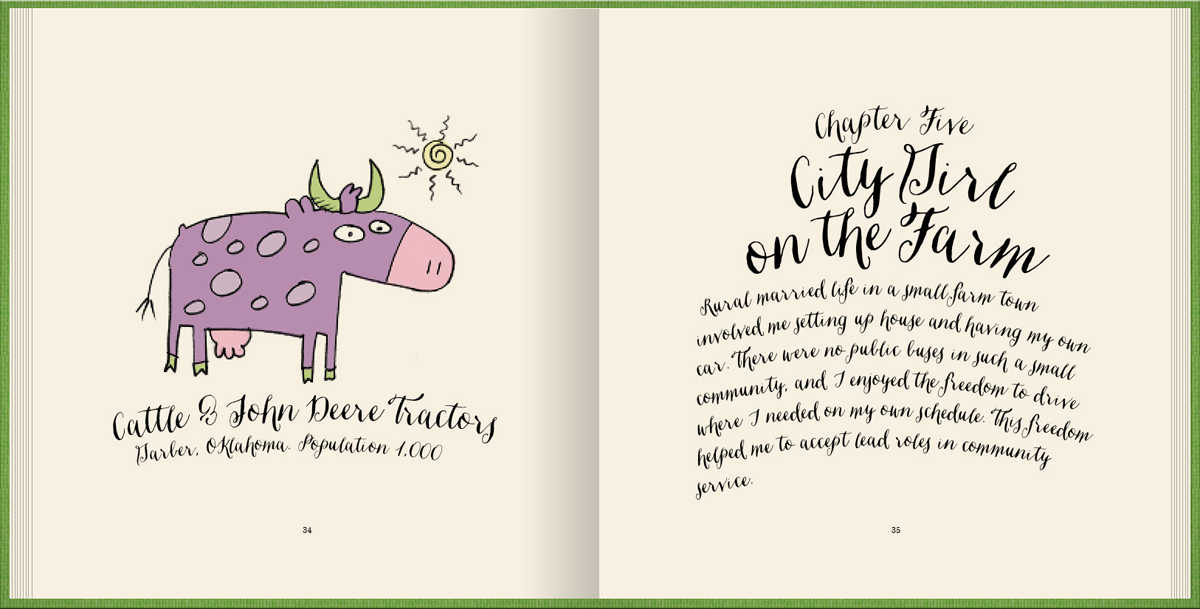 Cattle & John Deere Tractors
Garber, Oklahoma. Population 1,000
34
Chapter Five
City Girl
on the Farm
Rural married life in a small farm town
involved me setting up house and having my own
car. There were no public buses in such a small
community, and I enjoyed the freedom to drive
where I needed on my own schedule. This freedom
helped me to accept lead roles in community
service.
35